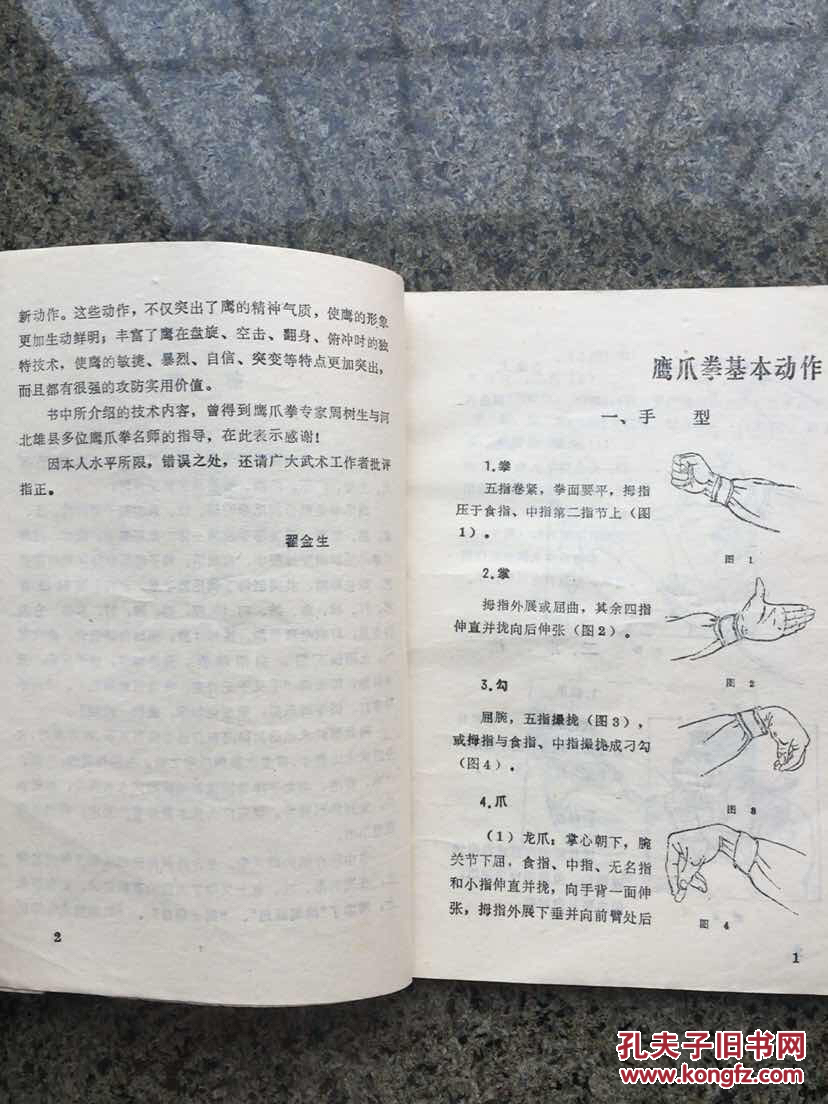 新动作。这些动作，不仅突出了鹰的精神气质，使鹰的形象
更加生动鲜明；丰富了鹰在盘旋、空击、翻身、俯冲时的独
特技术，使鹰的敏捷、暴烈、自信、突变等特点更加突出，
而且都有很强的攻防实用价值。
书中所介绍的技术内容，曾得到鹰爪拳专家周树生与河
北雄县多位鹰爪拳名师的指导，在此表示感谢！
因本人水平所限，错误之处，还请广大武术工作者批评
指正。
翟金生
2
鹰爪拳基本动作
一、手 型
1.拳
五指卷紧，拳面要平，拇指
压于食指、中指第二指节上（图
1）。
图 1
2.掌
拇指外展或屈曲，其余四指
伸直并拢向后伸张（图2）。
图 2
3.勾
屈腕，五指撮拢（图3），
或拇指与食指、中指撮拢成刁勾
（图4）。
图 3
4.爪
（1）龙爪：掌心朝下，腕
关节下屈，食指、中指、无名指
和小指伸直并拢，向手背一面伸
张，拇指外展下垂并向前臂处后
图 4
1
孔夫子旧书网
www.kongfz.com